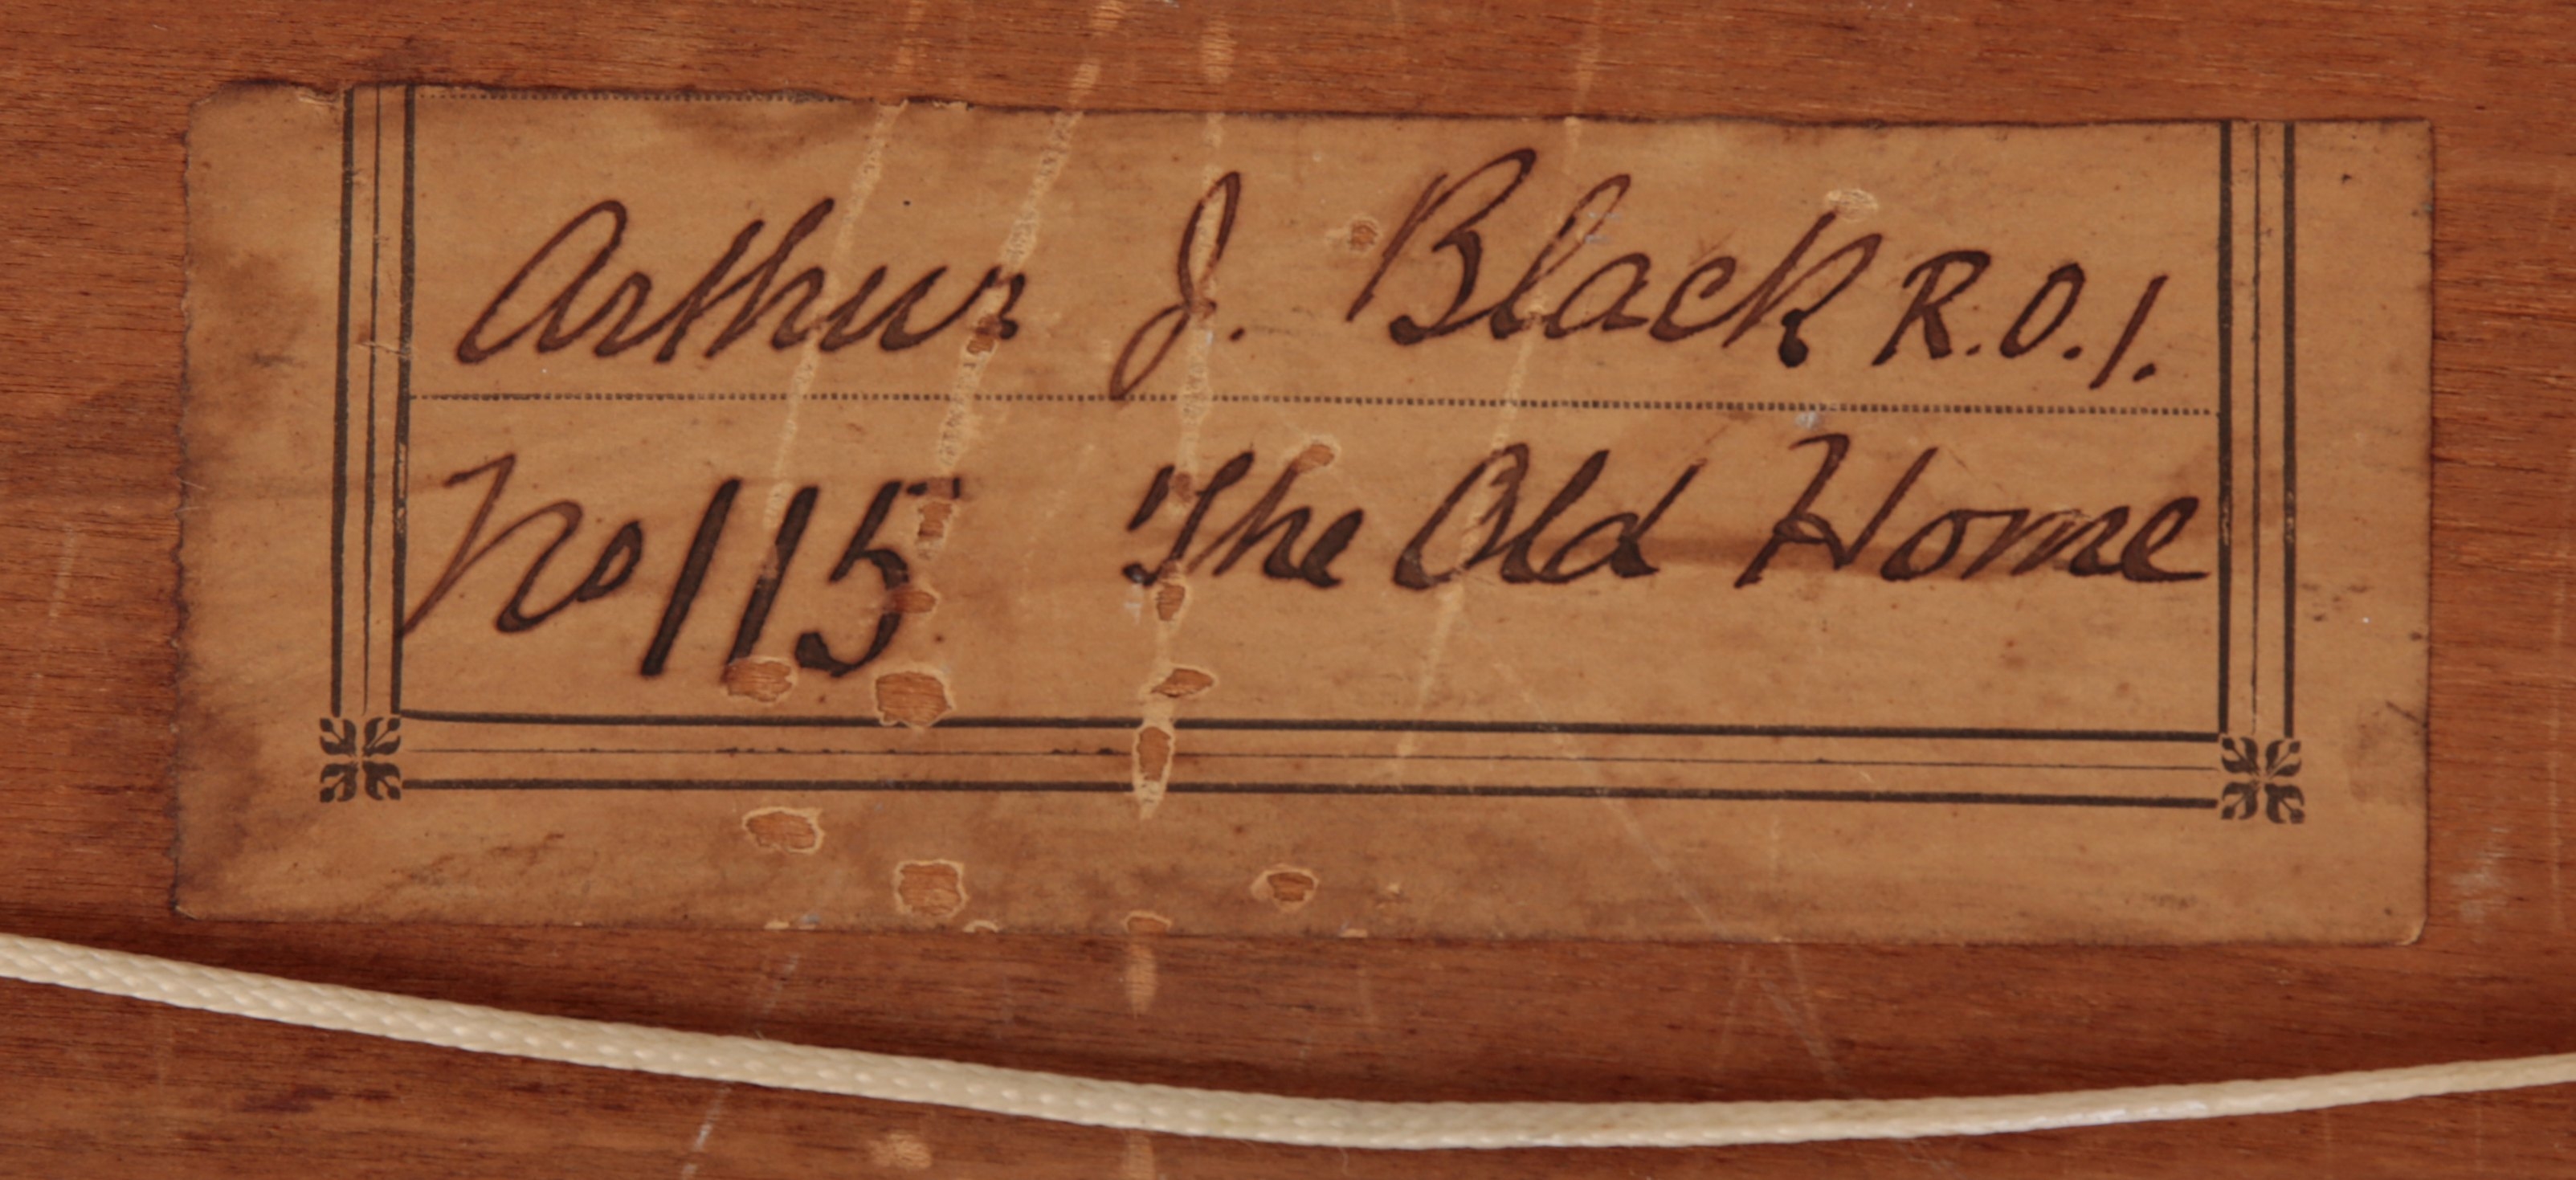 Arthur J. Black R.O.I.
No 115 The Old Home